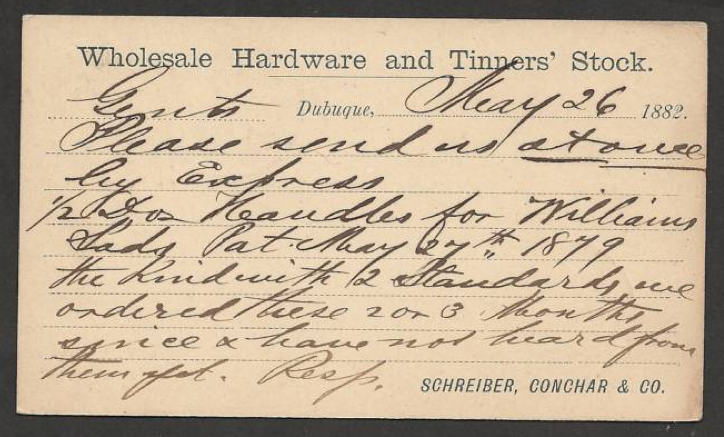 Wholesale Hardware and Tinners' Stock.
Gents Dubuque, May 26 1882.
Please send us at once
by Express
1/2 Doz Handles for Williams
Pat. May 27th 1879
the kind with 2 Standards, we
ordered these 2 or 3 Months
since & have not heard from
them yet. Resp.
SCHREIBER, CONCHAR & CO.